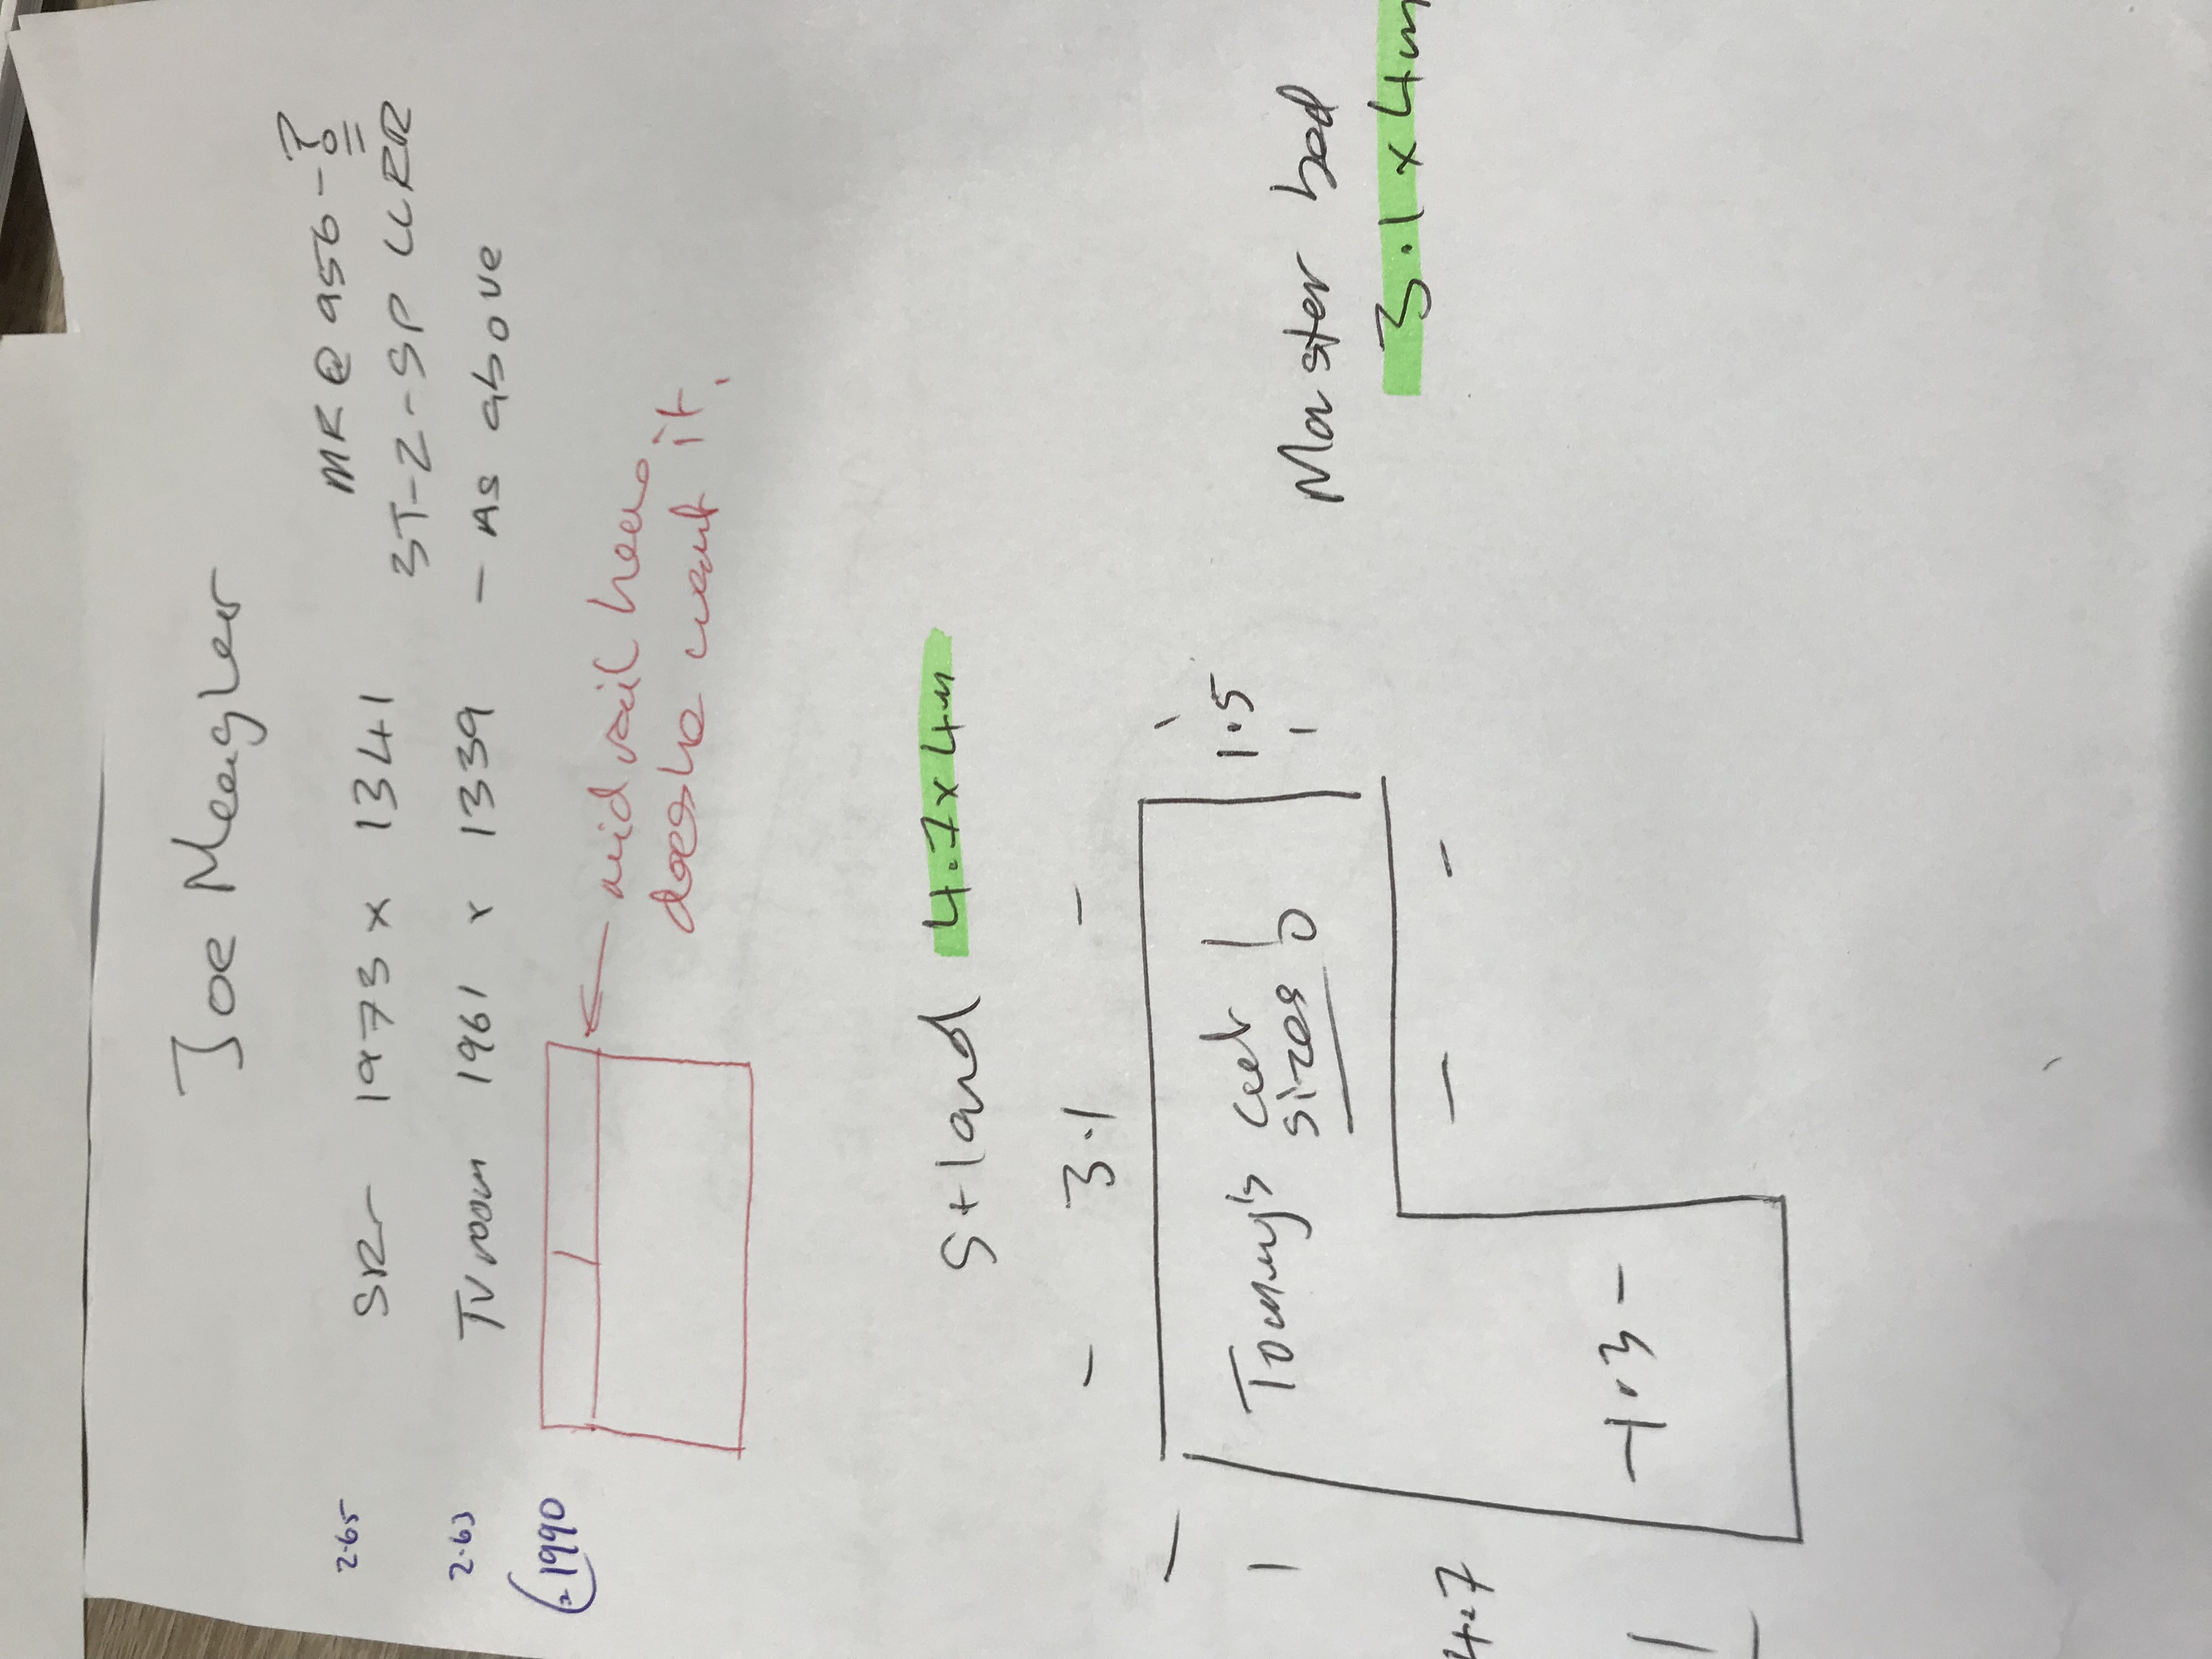 Joe Meagher
MR @ 956 - ?
SR 1973 x 1341
3T-2-SP LLRR
TV room 1961 x 1339 - As above
2.65
2.63
1990
mid rail here
does he want it.
S + land 4.7 x 4m
- 3.1 -
1.5
Tommy's cut
sizes!
Master bed
3.1 x 4m
4.7
- 1.3 -